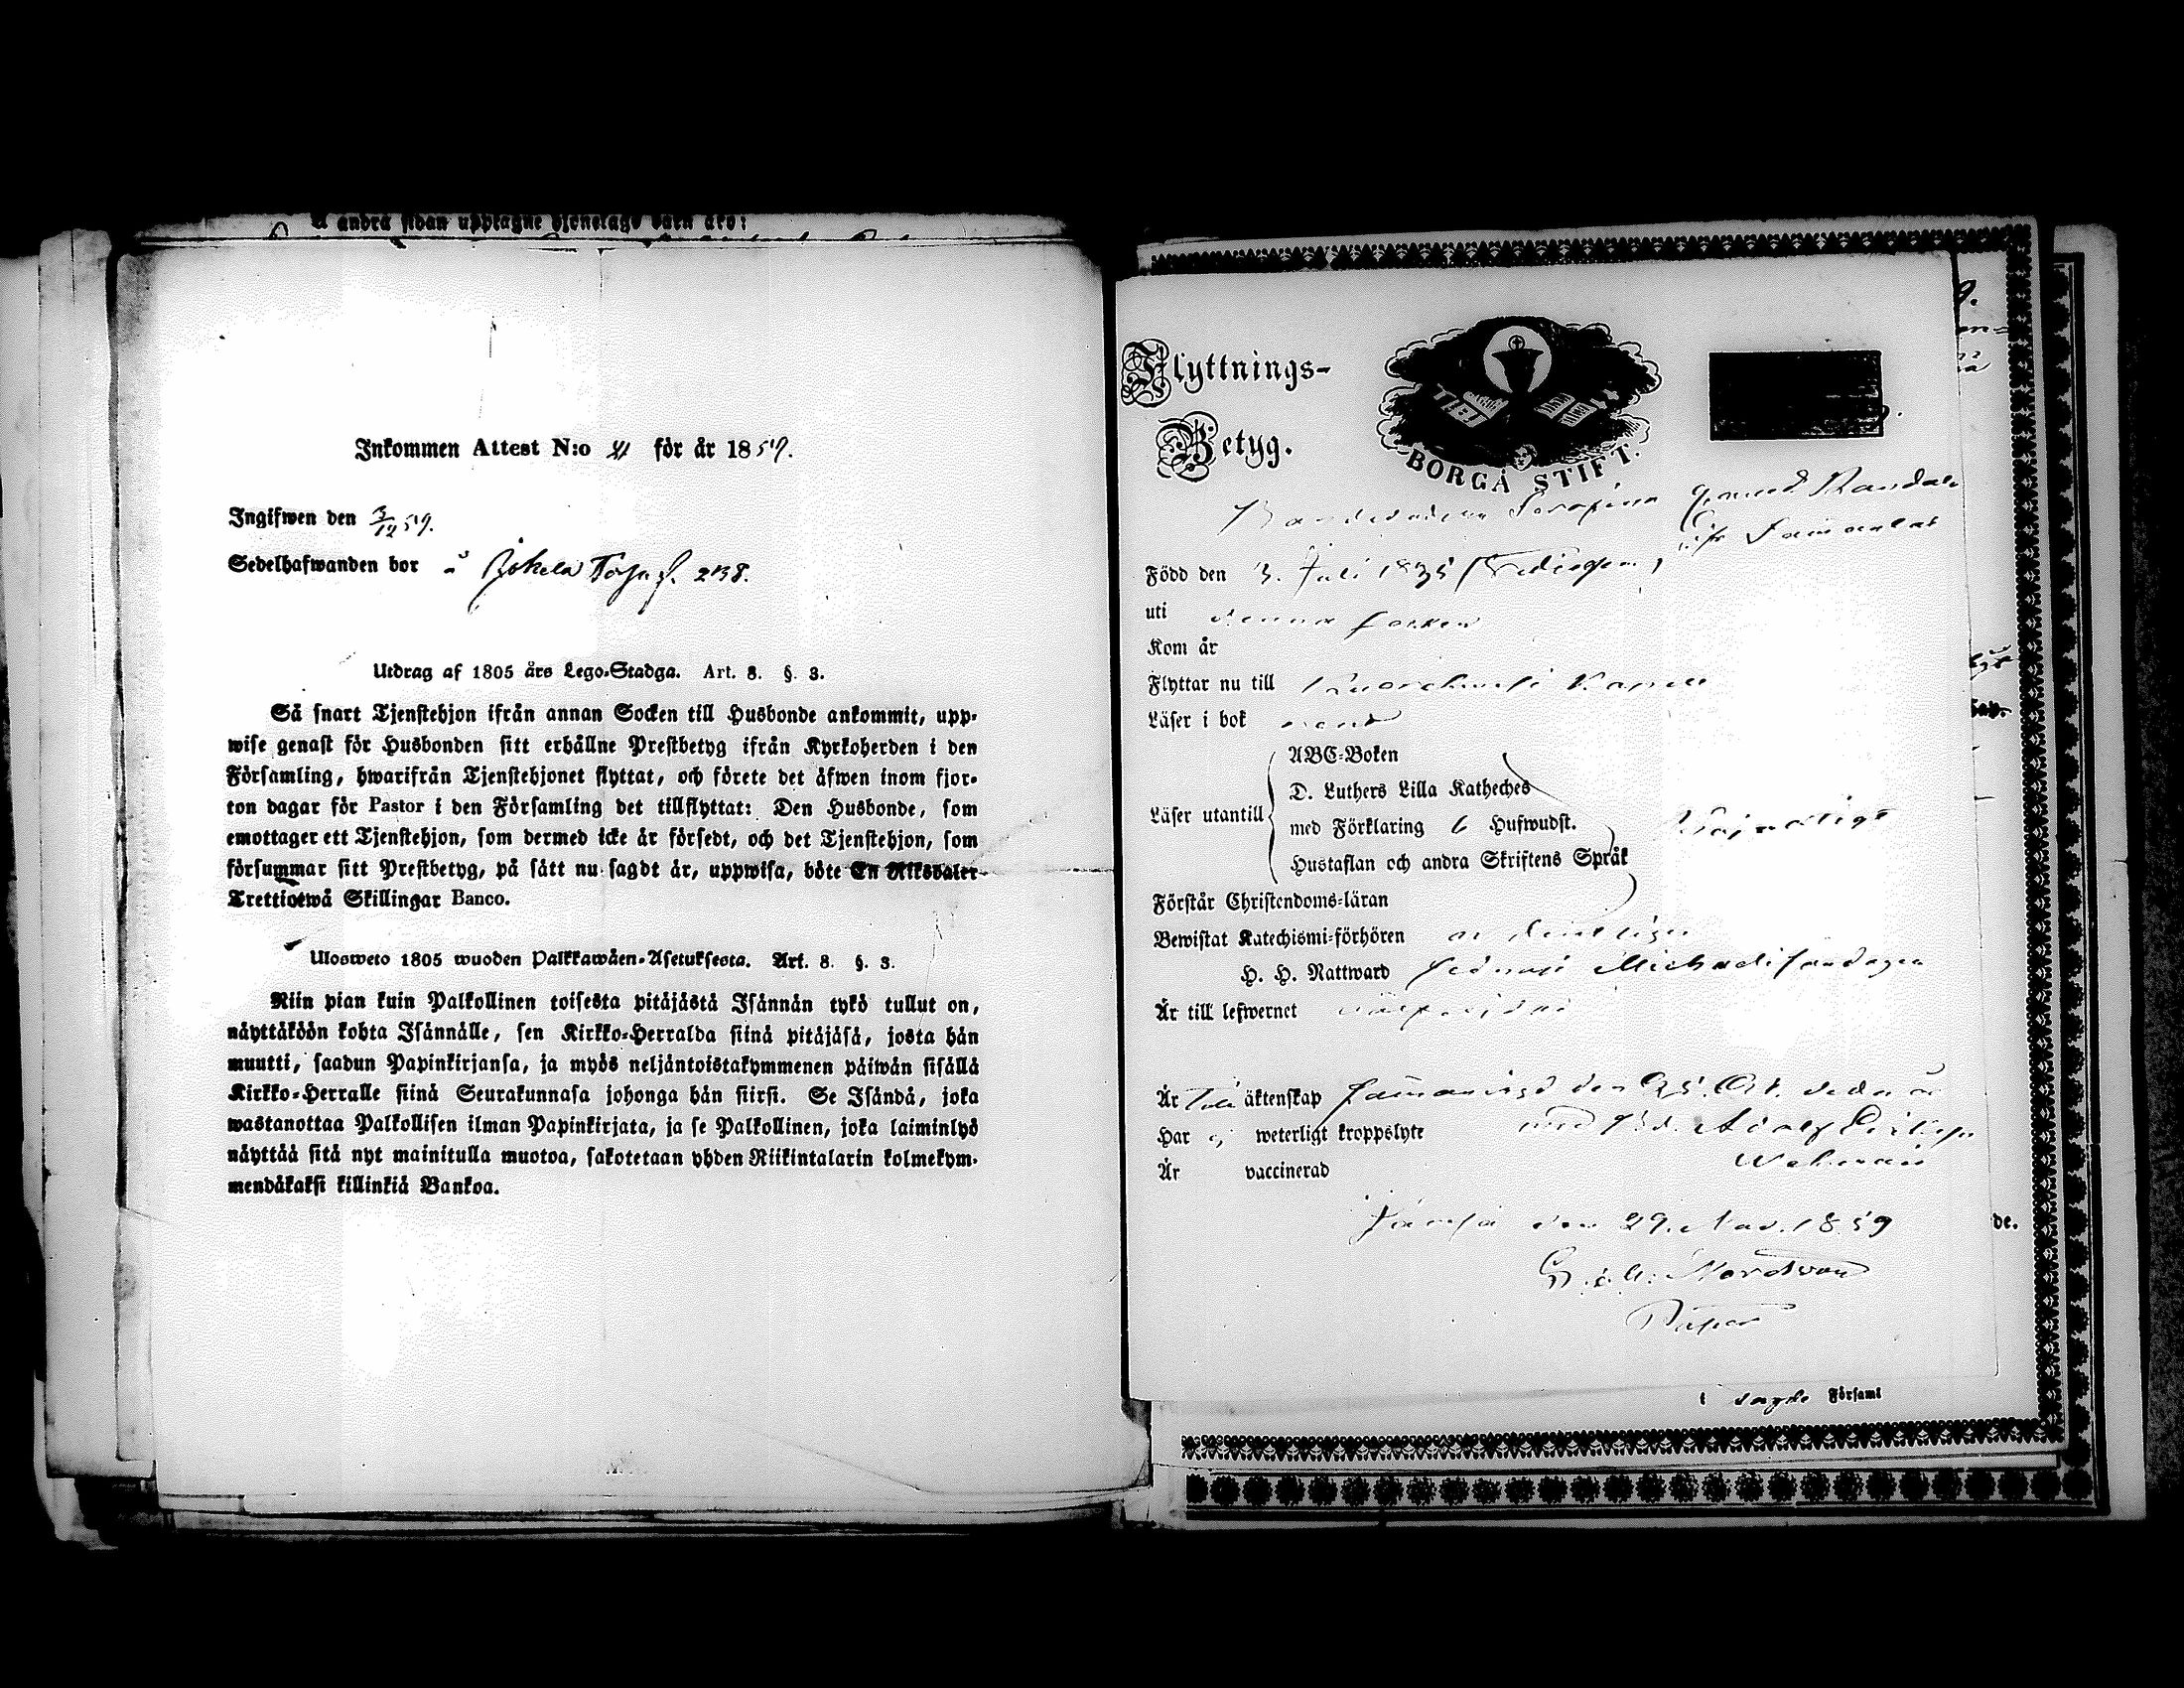 å andra sidan upptagne hjonelags barn äro:
Inkommen Attest N:o för år 1859.
Ingifwen den 3/12 59.
Sedelhafwanden bor å Jokela Torp. 238.
Utdrag af 1805 års Lego-Stadga. Art. 8. §. 3.
Så snart Tjenstehjon ifrån annan Socken till Husbonde ankommit, upp-
wise genast för Husbonden sitt erhållne Prestbetyg ifrån Kyrkoherden i den
Församling, hwarifrån Tjenstehjonet flyttat, och förete det äfwen inom fjor-
ton dagar för Pastor i den Församling det tillflyttat: Den Husbonde, som
emottager ett Tjenstehjon, som dermed icke är försedt, och det Tjenstehjon, som
försummar sitt Prestbetyg, på sätt nu sagdt är, uppwisa, böte En Riksdaler
Trettiotwå Skillingar Banco.
Ulosweto 1805 wuoden Palkkawäen-Asetuksesta. Art. 8. §. 3.
Niin pian kuin Palkollinen toisesta pitäjästä Isännän tykö tullut on,
näyttäköön kohta Isännälle, sen Kirkko-Herralda siinä pitäjäsä, josta hän
muutti, saadun Papinkirjansa, ja myös neljäntoistakymmenen päiwän sisällä
Kirkko-Herralle siinä Seurakunnasa johonga hän siirsi. Se Isändä, joka
wastanottaa Palkollisen ilman Papinkirjata, ja se Palkollinen, joka laiminlyö
näyttää sitä nyt mainitulla muotoa, sakotetaan yhden Riikintalarin kolmekym-
mendäkaksi killinkiä Bankoa.
Flyttnings-
Betyg.
BORGÅ STIFT.
Född den 3. Juli 1835
uti denna socken
Kom år
Flyttar nu till Kuorehwesi Kapell
Läser i bok rent
ABC-Boken
D. Luthers Lilla Katheches
Läser utantill
med Förklaring 6 Hufwudst.
Hustaflan och andra Skriftens Språk
Förstår Christendoms-läran
Bewistat Katechismi-förhören
H. H. Nattward sednast Michaeli söndagen
Är till lefwernet
Är till äktenskap sammanvigd den 25. Oct. detta år
Har ej weterligt kroppslyte med Adolf
Är vaccinerad
Jämsä den 29. Nov. 1859
Nordlund
i sagde Församl
de.